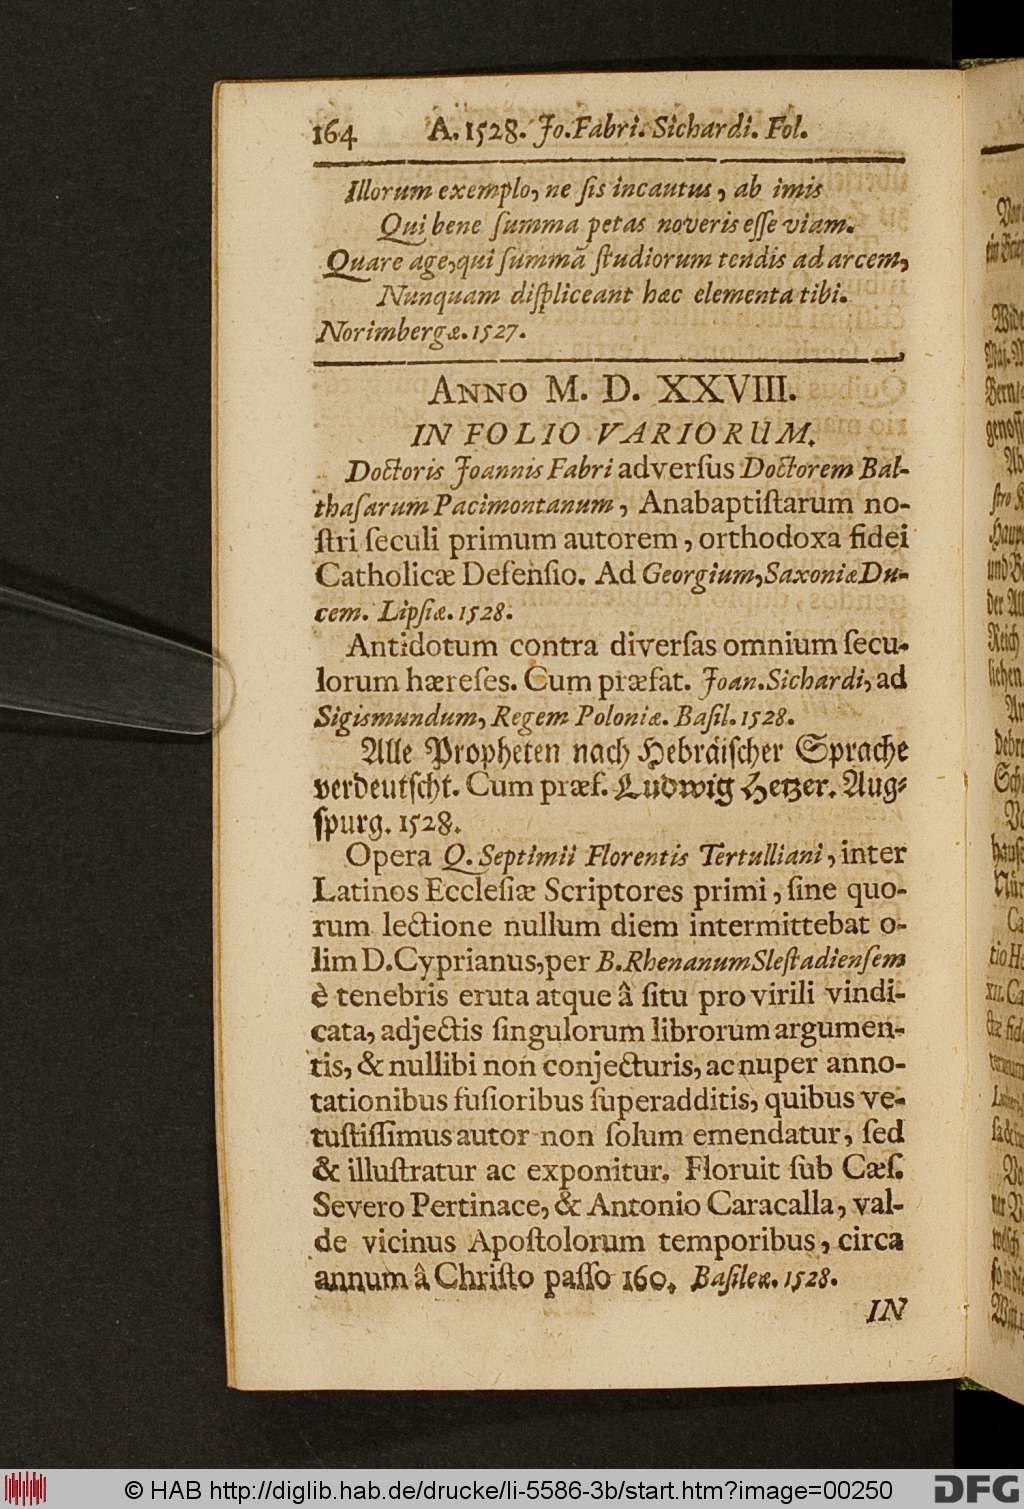 164 A. 1528. Jo. Fabri. Sichardi. Fol.
Illorum exemplo, ne ſis incautus, ab imis
Qui bene ſumma petas noveris eſſe viam.
Quare age, qui ſummã ſtudiorum tendis ad arcem,
Nunquam diſpliceant hæc elementa tibi.
Norimbergæ. 1527.
ANNO M. D. XXVIII.
IN FOLIO VARIORUM.
Doctoris Joannis Fabri adverſus Doctorem Bal-
thaſarum Pacimontanum, Anabaptiſtarum no-
ſtri ſeculi primum autorem, orthodoxa fidei
Catholicæ Defenſio. Ad Georgium, Saxoniæ Du-
cem. Lipſiæ. 1528.
Antidotum contra diverſas omnium ſecu-
lorum hæreſes. Cum præfat. Joan. Sichardi, ad
Sigismundum, Regem Poloniæ. Baſil. 1528.
Alle Propheten nach Hebräiſcher Sprache
verdeutſcht. Cum præf. Ludwig Hetzer. Aug-
ſpurg. 1528.
Opera Q. Septimii Florentis Tertulliani, inter
Latinos Eccleſiæ Scriptores primi, ſine quo-
rum lectione nullum diem intermittebat o-
lim D. Cyprianus, per B. Rhenanum Sleſtadienſem
è tenebris eruta atque â ſitu pro virili vindi-
cata, adjectis ſingulorum librorum argumen-
tis, & nullibi non conjecturis, ac nuper anno-
tationibus fuſioribus ſuperadditis, quibus ve-
tuſtiſſimus autor non ſolum emendatur, ſed
& illuſtratur ac exponitur. Floruit ſub Cæſ.
Severo Pertinace, & Antonio Caracalla, val-
de vicinus Apoſtolorum temporibus, circa
annum â Chriſto paſſo 160. Baſileæ. 1528.
IN
© HAB http://diglib.hab.de/drucke/li-5586-3b/start.htm?image=00250
DFG